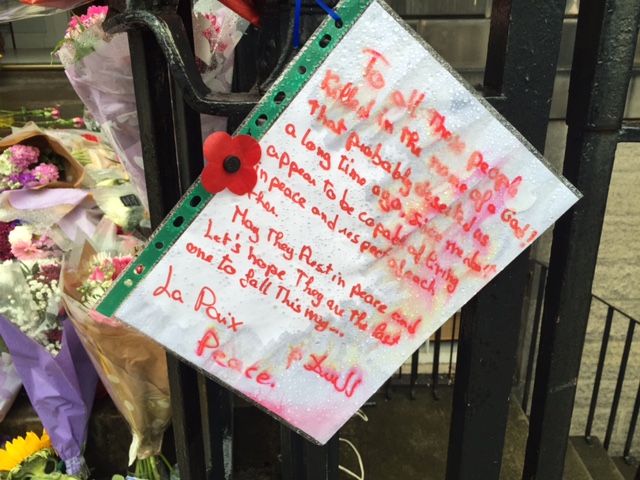 To all Those people
Killed in The name of a God!!
That probably deserted us
a long time ago, since we don't
appear to be capable of living
in peace and respect of each
other.
May They Rest in peace and
Let's hope They are the last
one to fall This way...
La Paix
Peace.